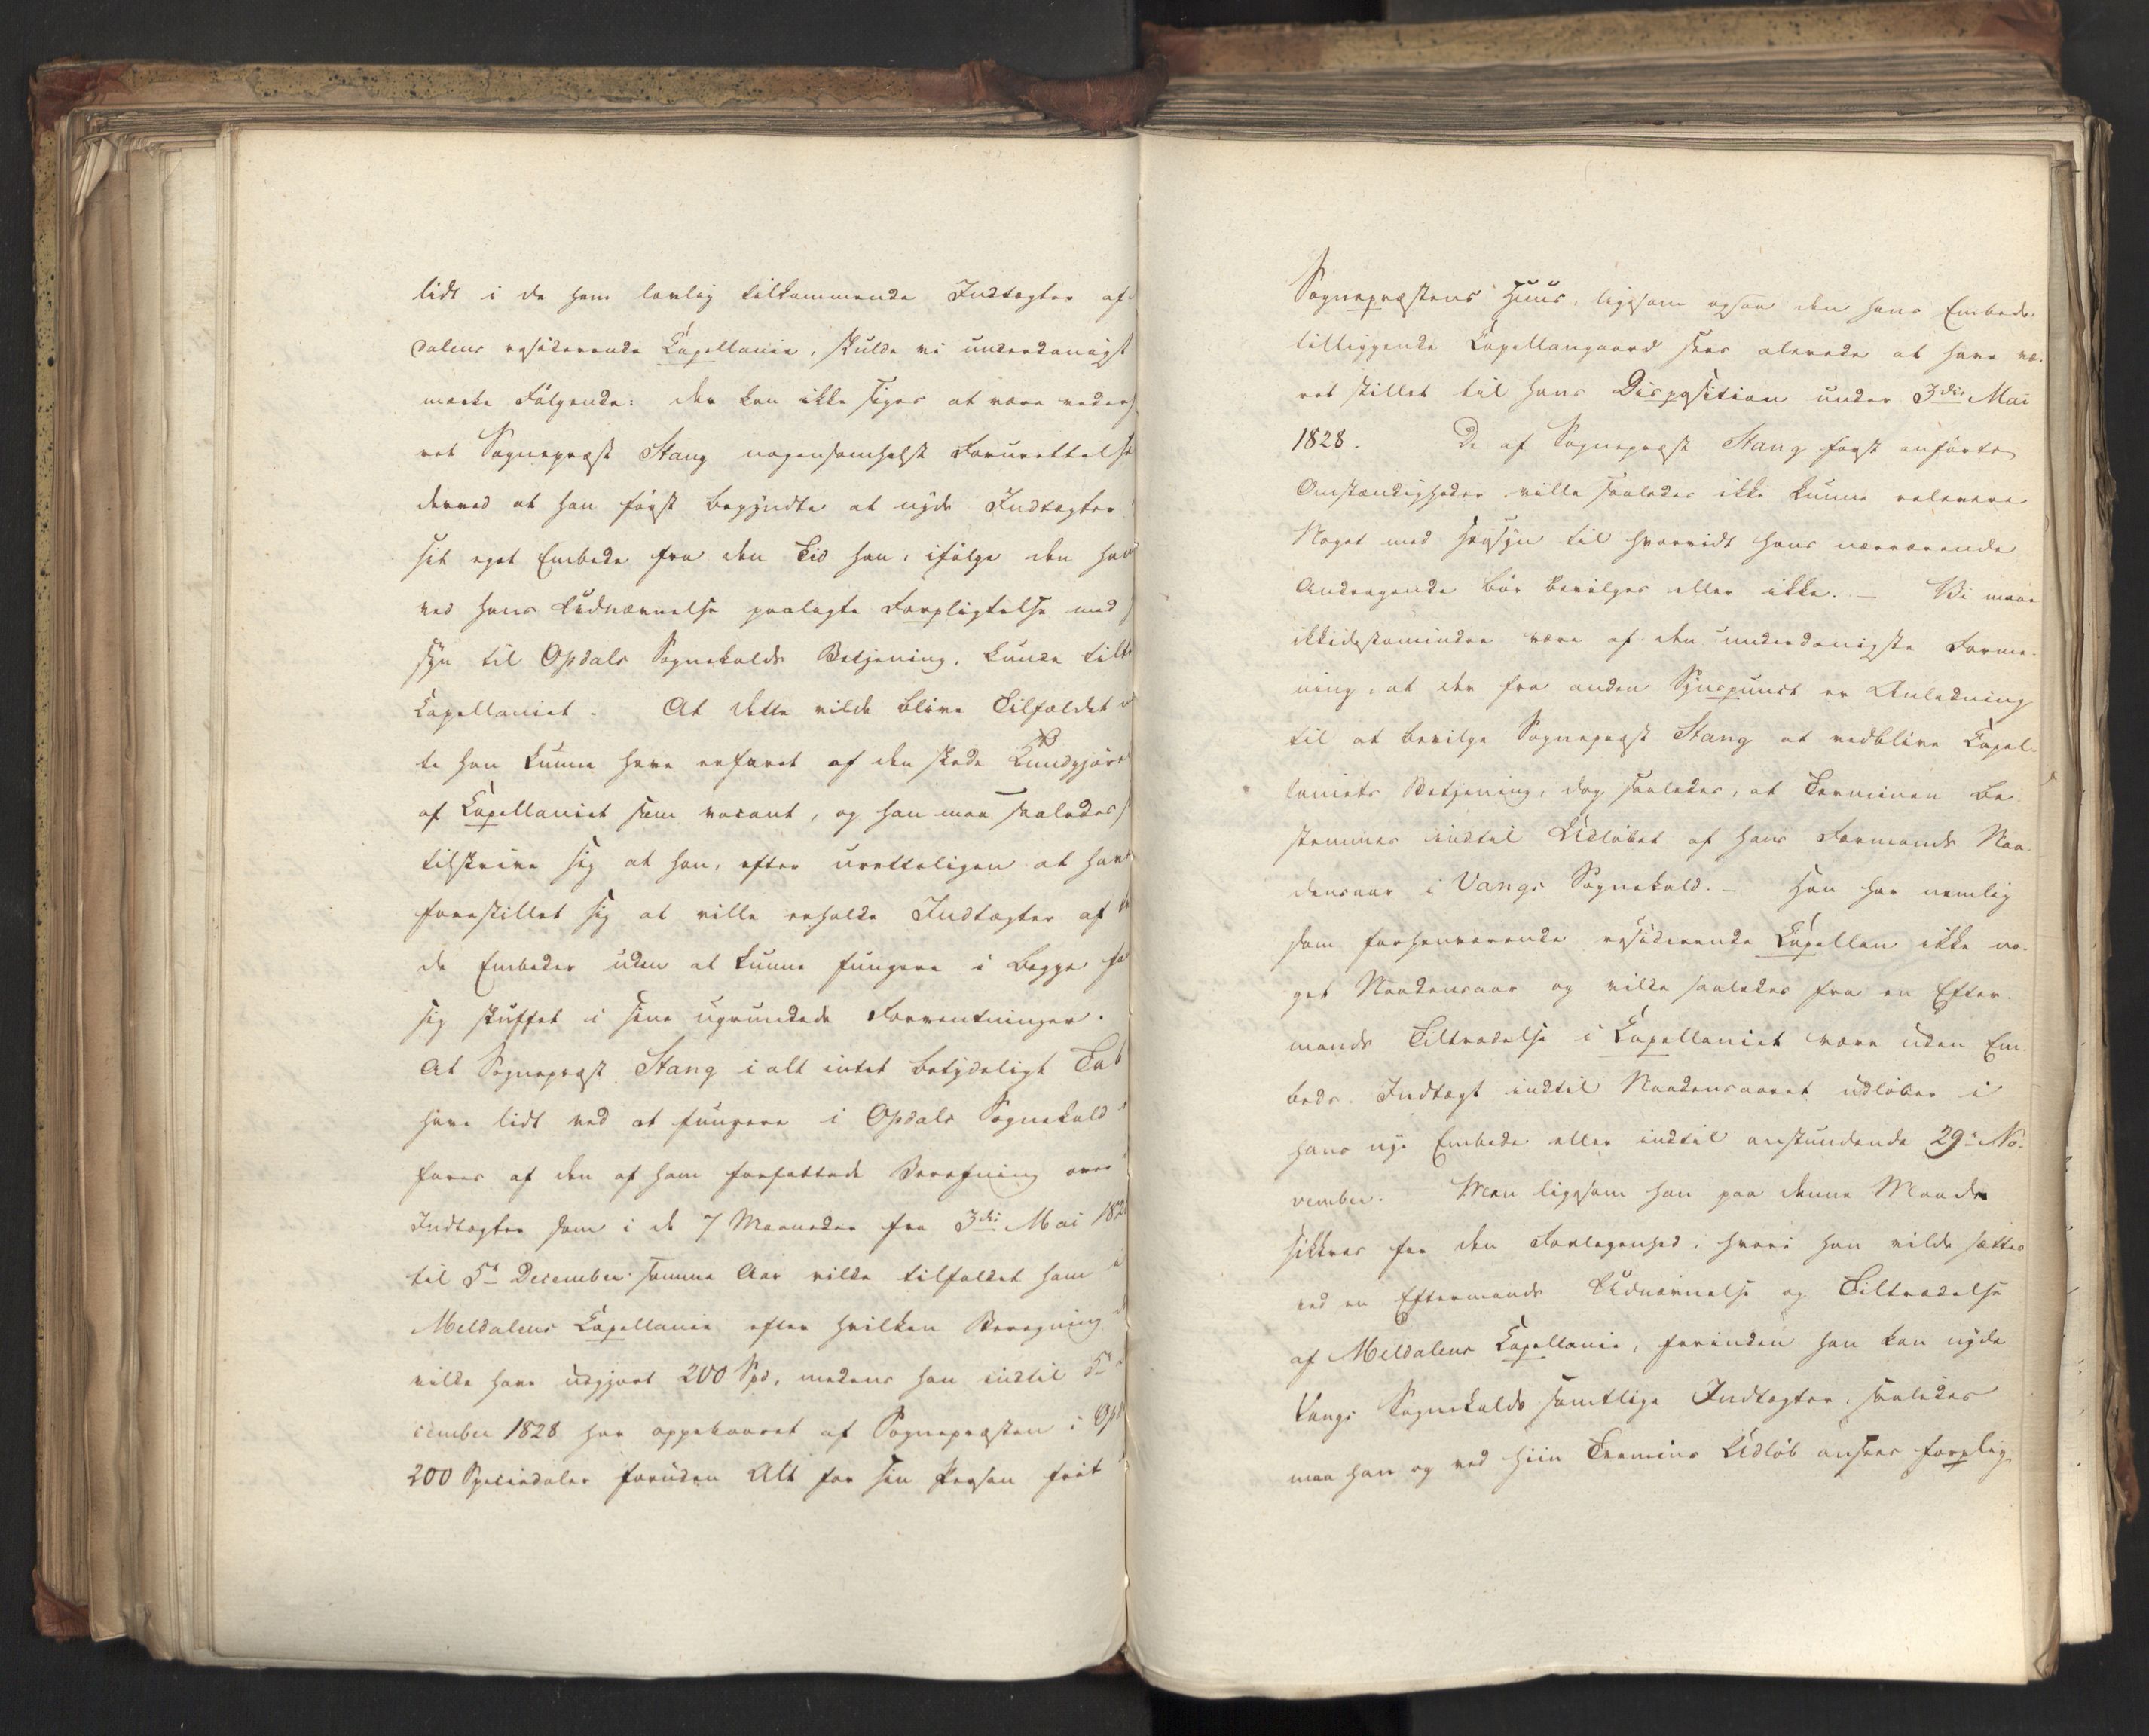 lidt i de ham lovlig tilkommende Indtægter af
dalens residerende Capellanie, skulde vi underdanigst
mærke Følgende: der kan ikke siges at være veder
ret Sognepræst Stang nogensomhelst Forurettelse
derved at han først begyndte at nyde Indtægter
sit eget Embede fra den Tid han, ifølge den ham
ved hans Udnævnelse paalagte Forpligtelse med
syn til Opdals Sognekalds Betjening, kunde tilt
Capellaniet. At dette vilde blive Tilfældet
te han kunne have erfaret af den skede Kundgjør
af Capellaniet som vacant, og han maa saaledes
tilskrive sig at han, efter uretteligen at have
forestillet sig at ville erholde Indtægter af
de Embeder uden at kunne fungere i begge
sig skuffet i sine ugrundede Forventninger.
At Sognepræst Stang i alt intet betydeligt Tab
have lidt ved at fungere i Opdals Sognekald
fares af den af ham forfattede Beregning over
Indtægter som i de 7 Maaneder fra 3die Mai 182
til 5te December samme Aar vilde tilfaldet ham
Meldalens Capellanie efter hvilken Beregning
vilde have udgjort 200 Spd, medens han indtil 5te
cember 1828 har oppebaaret af Sognepræsten i Opd
200 Speciedaler foruden Alt for sin Person frit
Sognepræstens Huus, ligesom ogsaa den hans Embede
tilliggende Capellangaard sees alerede at have væ-
ret stillet til hans Disposition under 3die Mai
1828. De af Sognepræst Stang først anførte
Omstændigheder ville saaledes ikke kunne relevere
Noget med Hensyn til hvorvidt hans nærværende
Andragende bør bevilges eller ikke. – Vi maae
ikkidestomindre være af den underdanigste Forme-
ning, at der fra anden Synspunct er Anledning
til at bevilge Sognepræst Stang at vedblive Capel-
laniets Betjening, dog saaledes, at Terminen be
stemmes indtil Udløbet af hans Formands Naa-
densaar i Vangs Sognekald. – Han har nemlig
som forhenværende residerende Capellan ikke no-
get Naadensaar og vilde saaledes fra en Efter-
mands Tiltrædelse i Capellaniet være uden Em-
beds Indtægt indtil Naadensaaret udløber i
hans nye Embede eller indtil anstundende 29de No-
vember. Men ligesom han paa denne Maade
sikkres for den Forlegenhed, hvori han vilde sættes
ved en Eftermands Udnævnelse og Tiltrædelse
af Meldalens Capellanie, forinden han kan nyde
Vangs Sognekalds samtlige Indtægter, saaledes
maa han og ved hiin Termins Udløb ansees forplig-